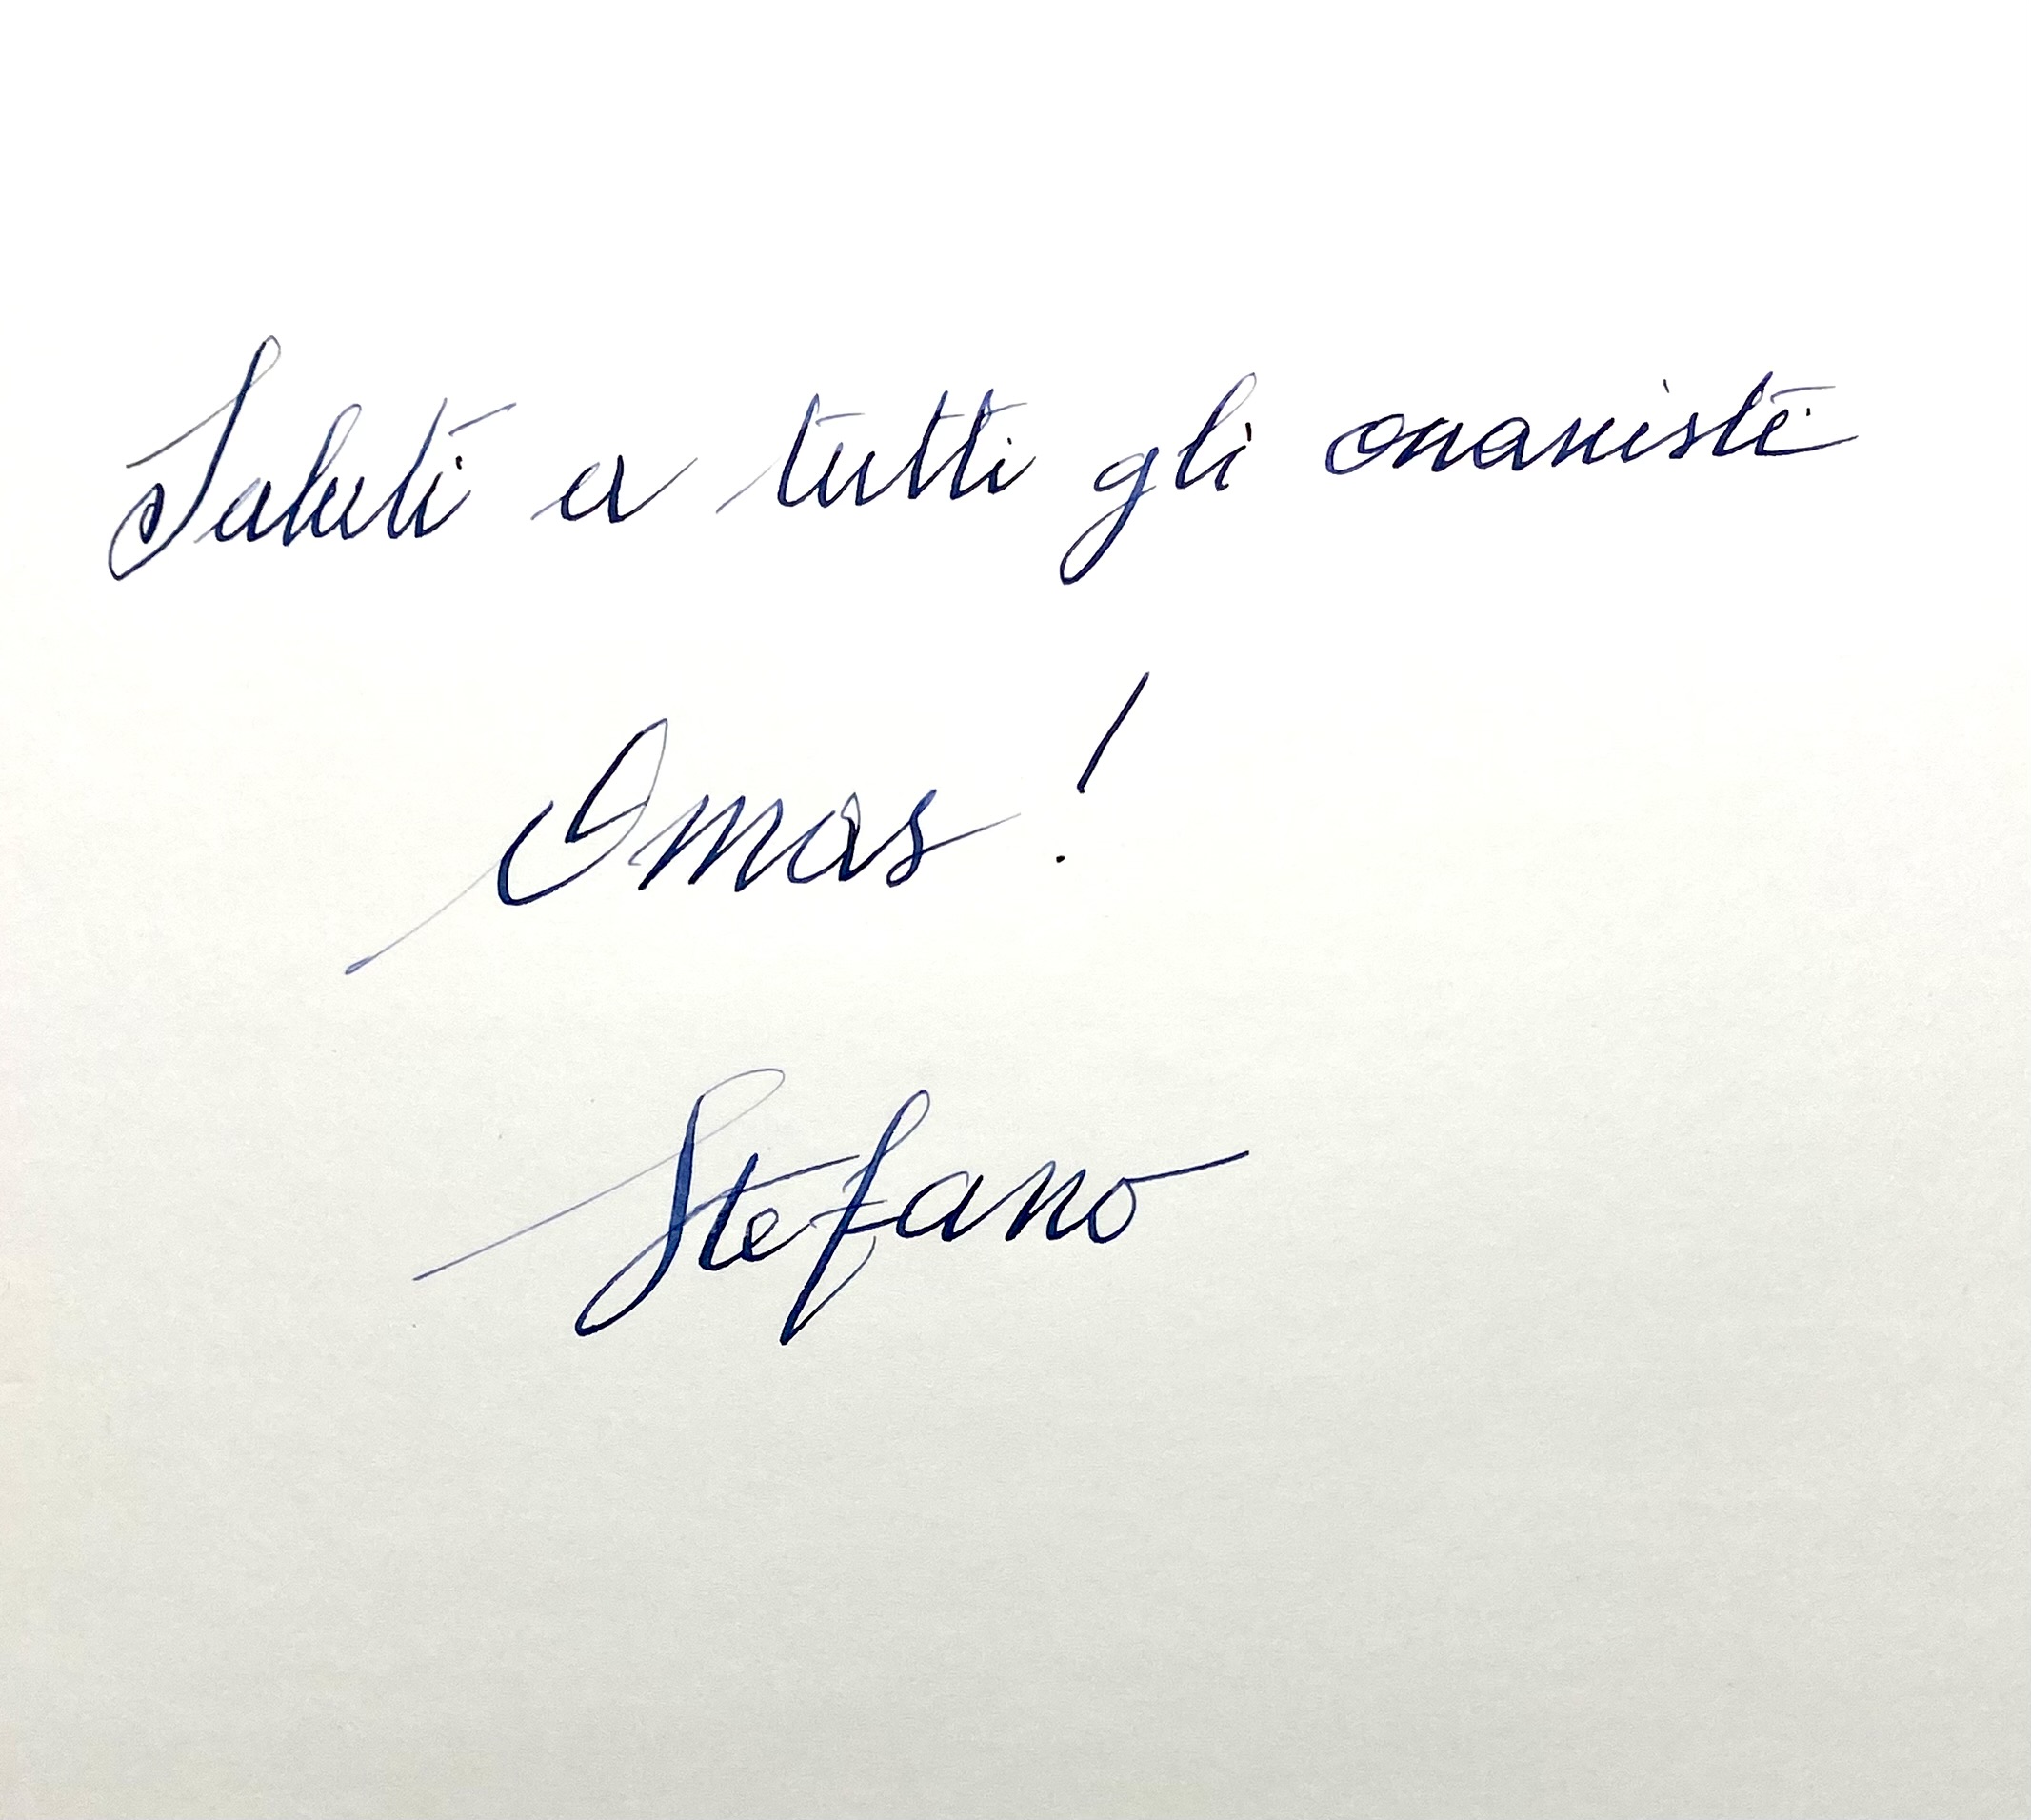 Saluti a tutti gli onanisti
Omas!
Stefano